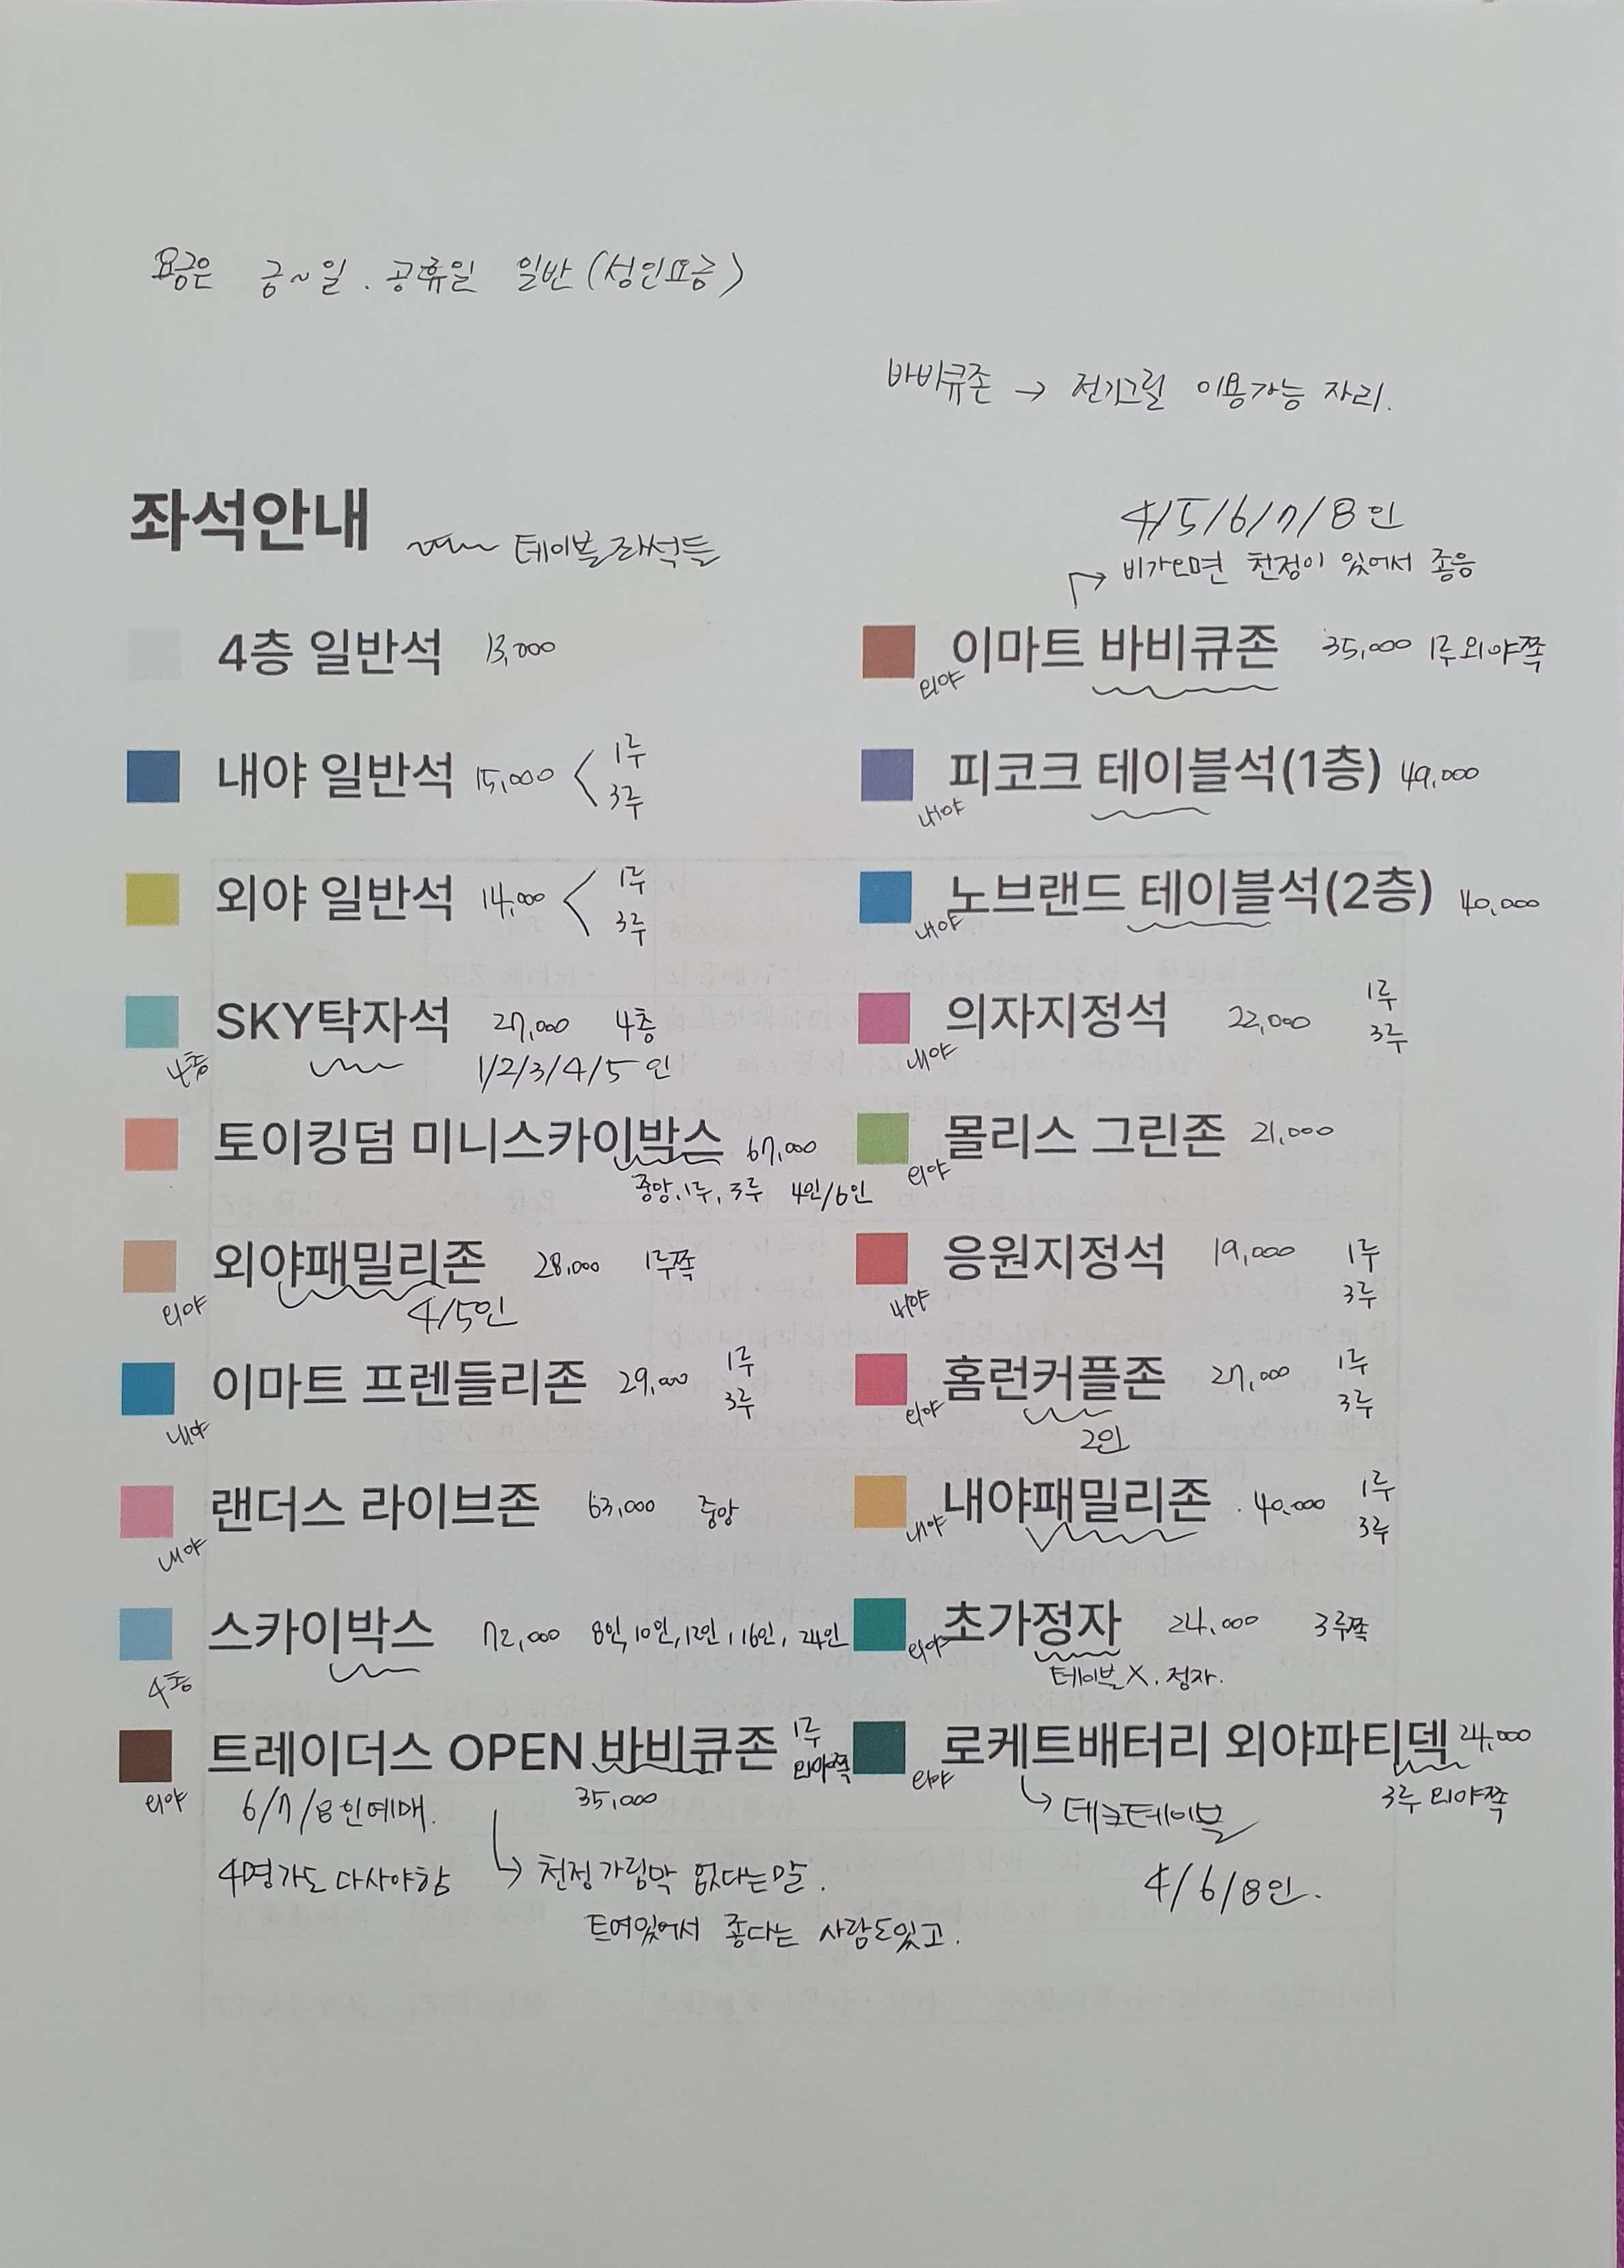 요금은 금~일. 공휴일 일반(성인요금)
바비큐존 → 전기그릴 이용가능 자리.
좌석안내
테이블좌석들
4층 일반석 13,000
내야 일반석 15,000 < 1루 3루
외야 일반석 14,000 < 1루 3루
SKY탁자석 27,000 4층
4층 1/2/3/4/5인
토이킹덤 미니스카이박스 67,000
중앙, 1루, 3루 4인/6인
외야패밀리존 28,000 1루쪽
외야 4/5인
이마트 프렌들리존 29,000 1루 3루
내야
랜더스 라이브존 63,000 중앙
내야
스카이박스 72,000 8인, 10인, 12인, 16인, 24인
4층
트레이더스 OPEN 바비큐존 1루 외야쪽
외야 6/7/8인예매. 35,000
4명가도 다사야함
→ 천정가림막 없다는말.
트여있어서 좋다는 사람도있고.
4/5/6/7/8인
→ 비가오면 천정이 있어서 좋음
이마트 바비큐존 35,000 1루외야쪽
외야
피코크 테이블석(1층) 49,000
내야
노브랜드 테이블석(2층) 40,000
내야
의자지정석 22,000 1루 3루
내야
몰리스 그린존 21,000
외야
응원지정석 19,000 1루 3루
내야
홈런커플존 27,000 1루 3루
외야 2인
내야패밀리존 40,000 1루 3루
내야
초가정자 24,000 3루쪽
외야 테이블X. 정자.
로케트배터리 외야파티덱 24,000
외야 3루 외야쪽
→ 데크테이블
4/6/8인.